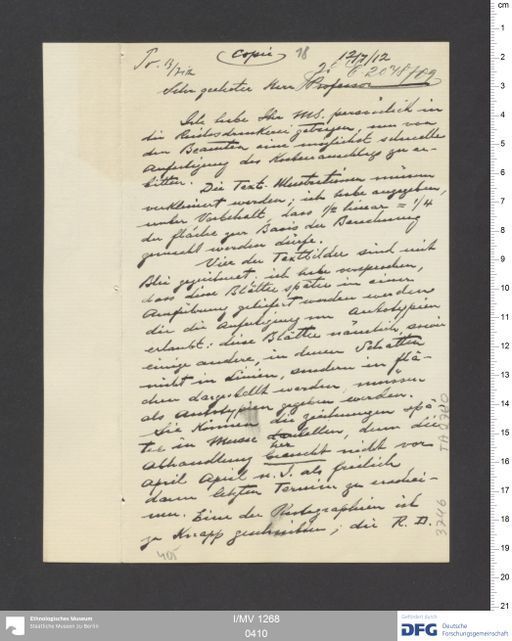 Copie 18
12/7/12
Sehr geehrter Herr Professor
Ich habe Ihr MS. persönlich in
die Reichsdruckerei getragen, um von
den Beamten eine möglichst schnelle
Anfertigung des Kostenanschlags zu er-
bitten. Die Text-Illustrationen müssen
verkleinert werden; ich habe angegeben,
unter Vorbehalt, dass 1/2 linear = 1/4
der fläche zur Basis der Berechnung
gemacht werden dürfe.
Vier der Textbilder sind mit
Blei gezeichnet: ich habe versprochen,
dass diese Blätter später in einer
Ausführung geliefert werden würden
die die Anfertigung von Autotypien
erlaubt: diese Blätter nämlich, sowie
einige andere, in denen Schatten
nicht in Linien, sondern in flä-
chen dargestellt werden, müssen
als Autotypien gegeben werden.
Sie können die zeichnungen spä-
ter in Musse herstellen, denn die
Abhandlung braucht nicht vor
April April n. J. als freilich
dann letzten Termin zu erschei-
nen. Eine der Photographien ist
zu knapp geschnitten; die R. D.
405
3746
TA 2700
Ethnologisches Museum
Staatliche Museen zu Berlin
I/MV 1268
0410
Gefördert durch
DFG Deutsche
Forschungsgemeinschaft
cm
1
2
3
4
5
6
7
8
9
10
11
12
13
14
15
16
17
18
19
20
21